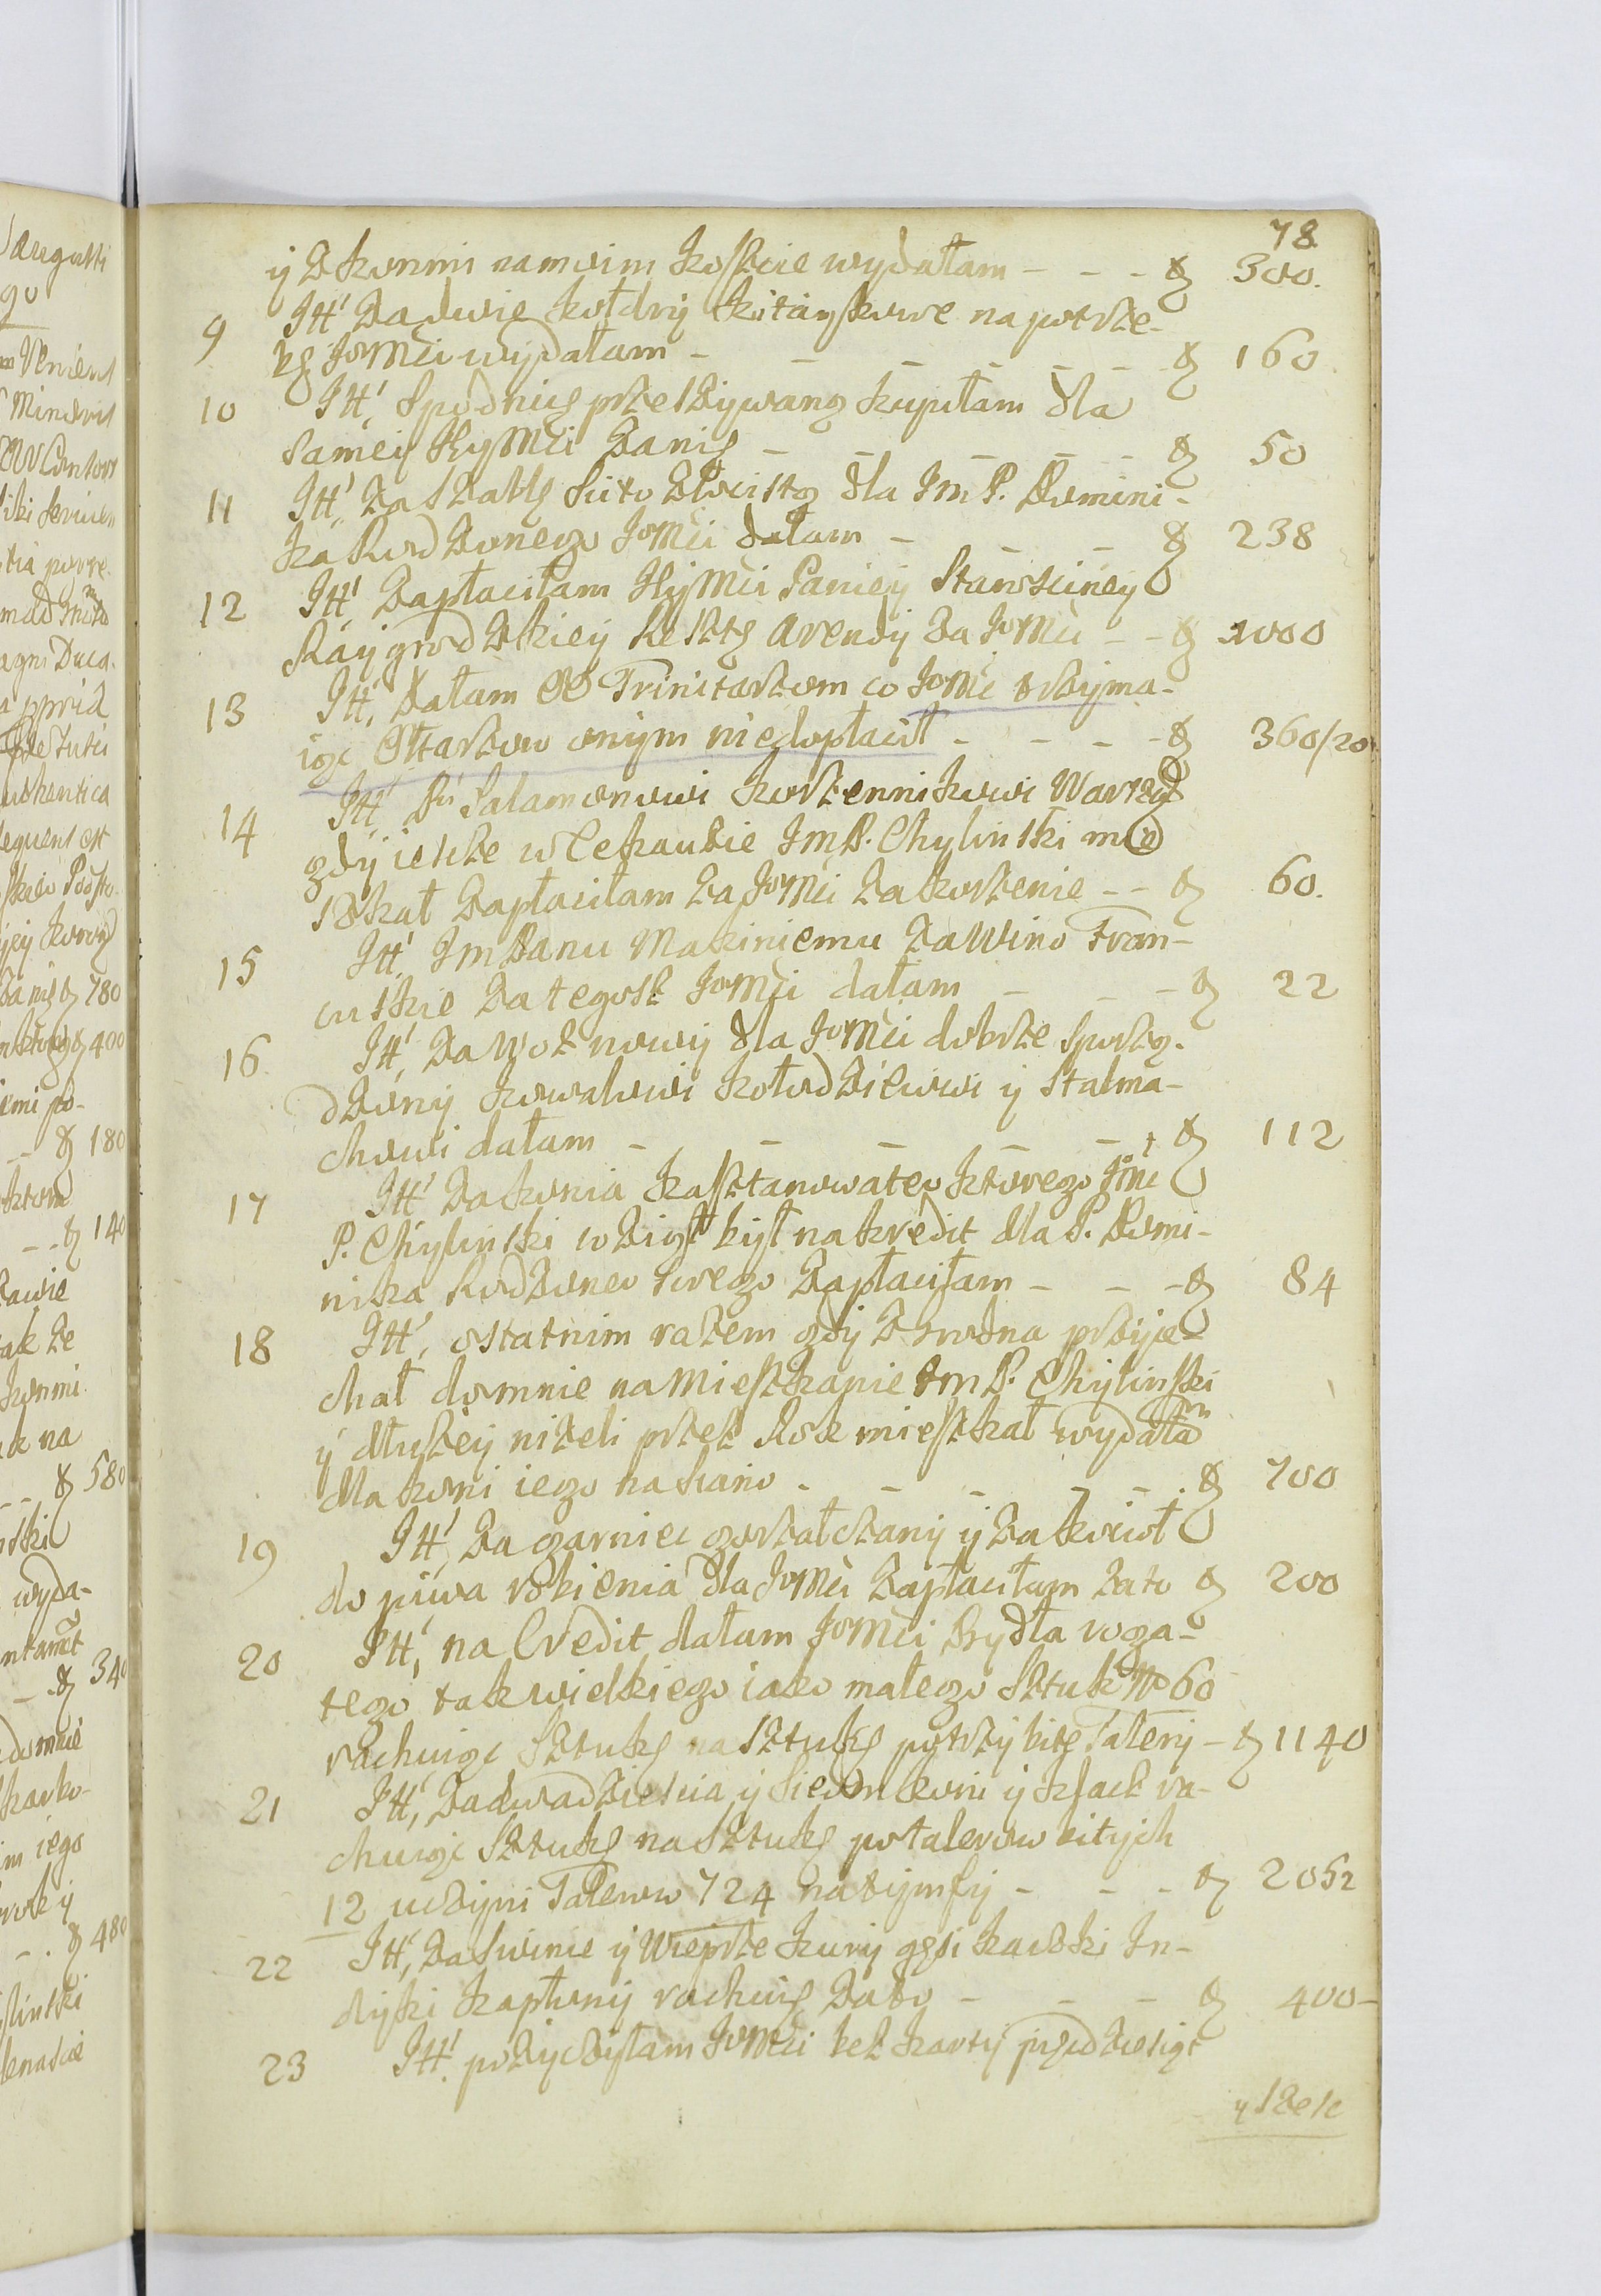 78
y z konmi na moim koszcie wydałam - - - & 300.
9 Itt' Za dwie kołdry kitaykowe na potrze-
bę JoMći wydałam - - - - - & 160
10 Itt', Spodnicę przeszywaną kupiłam dla
samey HyMći Zanię - - - - & 50
11 Itt', Za szablę suto złocistą dla Im P. Domini-
ka Rodzonego JoMći dałam - - - & 238
12 Itt' Zapłaciłam HyMći Paniey Starościney
Raygrodzkiey Resztę Arendy za JoMći - - & 1000
13 Itt', Dałam OO Trinitarzom co JoMć trzyma-
iąc Ołtarzow onym niedopłacił - - - - & 360/20
14 Itt', Pu Salamonowi korzennikowi Warsz
gdy ieszcze w Lekaubie Im P. Chylinski mię
szkał Zapłaciłam za JoMći za korzenie - - & 60.
15 Itt', Im Panu Makiniemu za Wino Fran-
cuskie za tegosz JoMći dałam - - - & 22
16. Itt', Za Woz nowy dla JoMći dobrze sporzą-
dzony kowalowi kołodzieiowi y Stalma-
chowi dałam - - - - - & 112
17 Itt' Za konia kasztanowateo ktorego Jmć
P. Chylinski wziął był na kredit dla P. Domi-
nika Rodzoneo swego Zapłaciłam - - - & 84
18 Itt', ostatnim razem gdy z Grodna przyje-
chał do mnie na Mieszkanie Im P. Chylinski
y dłużey niżeli przez Rok mieszkał wydałam
dla koni iego na siano - - - - - & 700
19 Itt', Za garniec gorzałczany y za kocioł
do piwa robienia dla JoMći Zapłaciłam za to & 200
20 Itt', na Credit dałam JoMći Bydła roga-
tego tak wielkiego iako małego Sztuk No 60
rachuiąc Sztukę na Sztukę po trzy bite Talery - & 1140
21 Itt', Za dwadzieścia y siedm koni y klacz ra-
chuiąc Sztukę na Sztukę po talerow bitych
12 uczyni Talerow 724 na tymfy - - - & 2052
22 Itt', Za swinie y Wieprze kury gęsi kaczki In-
dyki kapłony rachuię za to - - - & 400-
23 Itt'. pożyczyłam JoMći bez karty pięcdziesiąt
y szesc